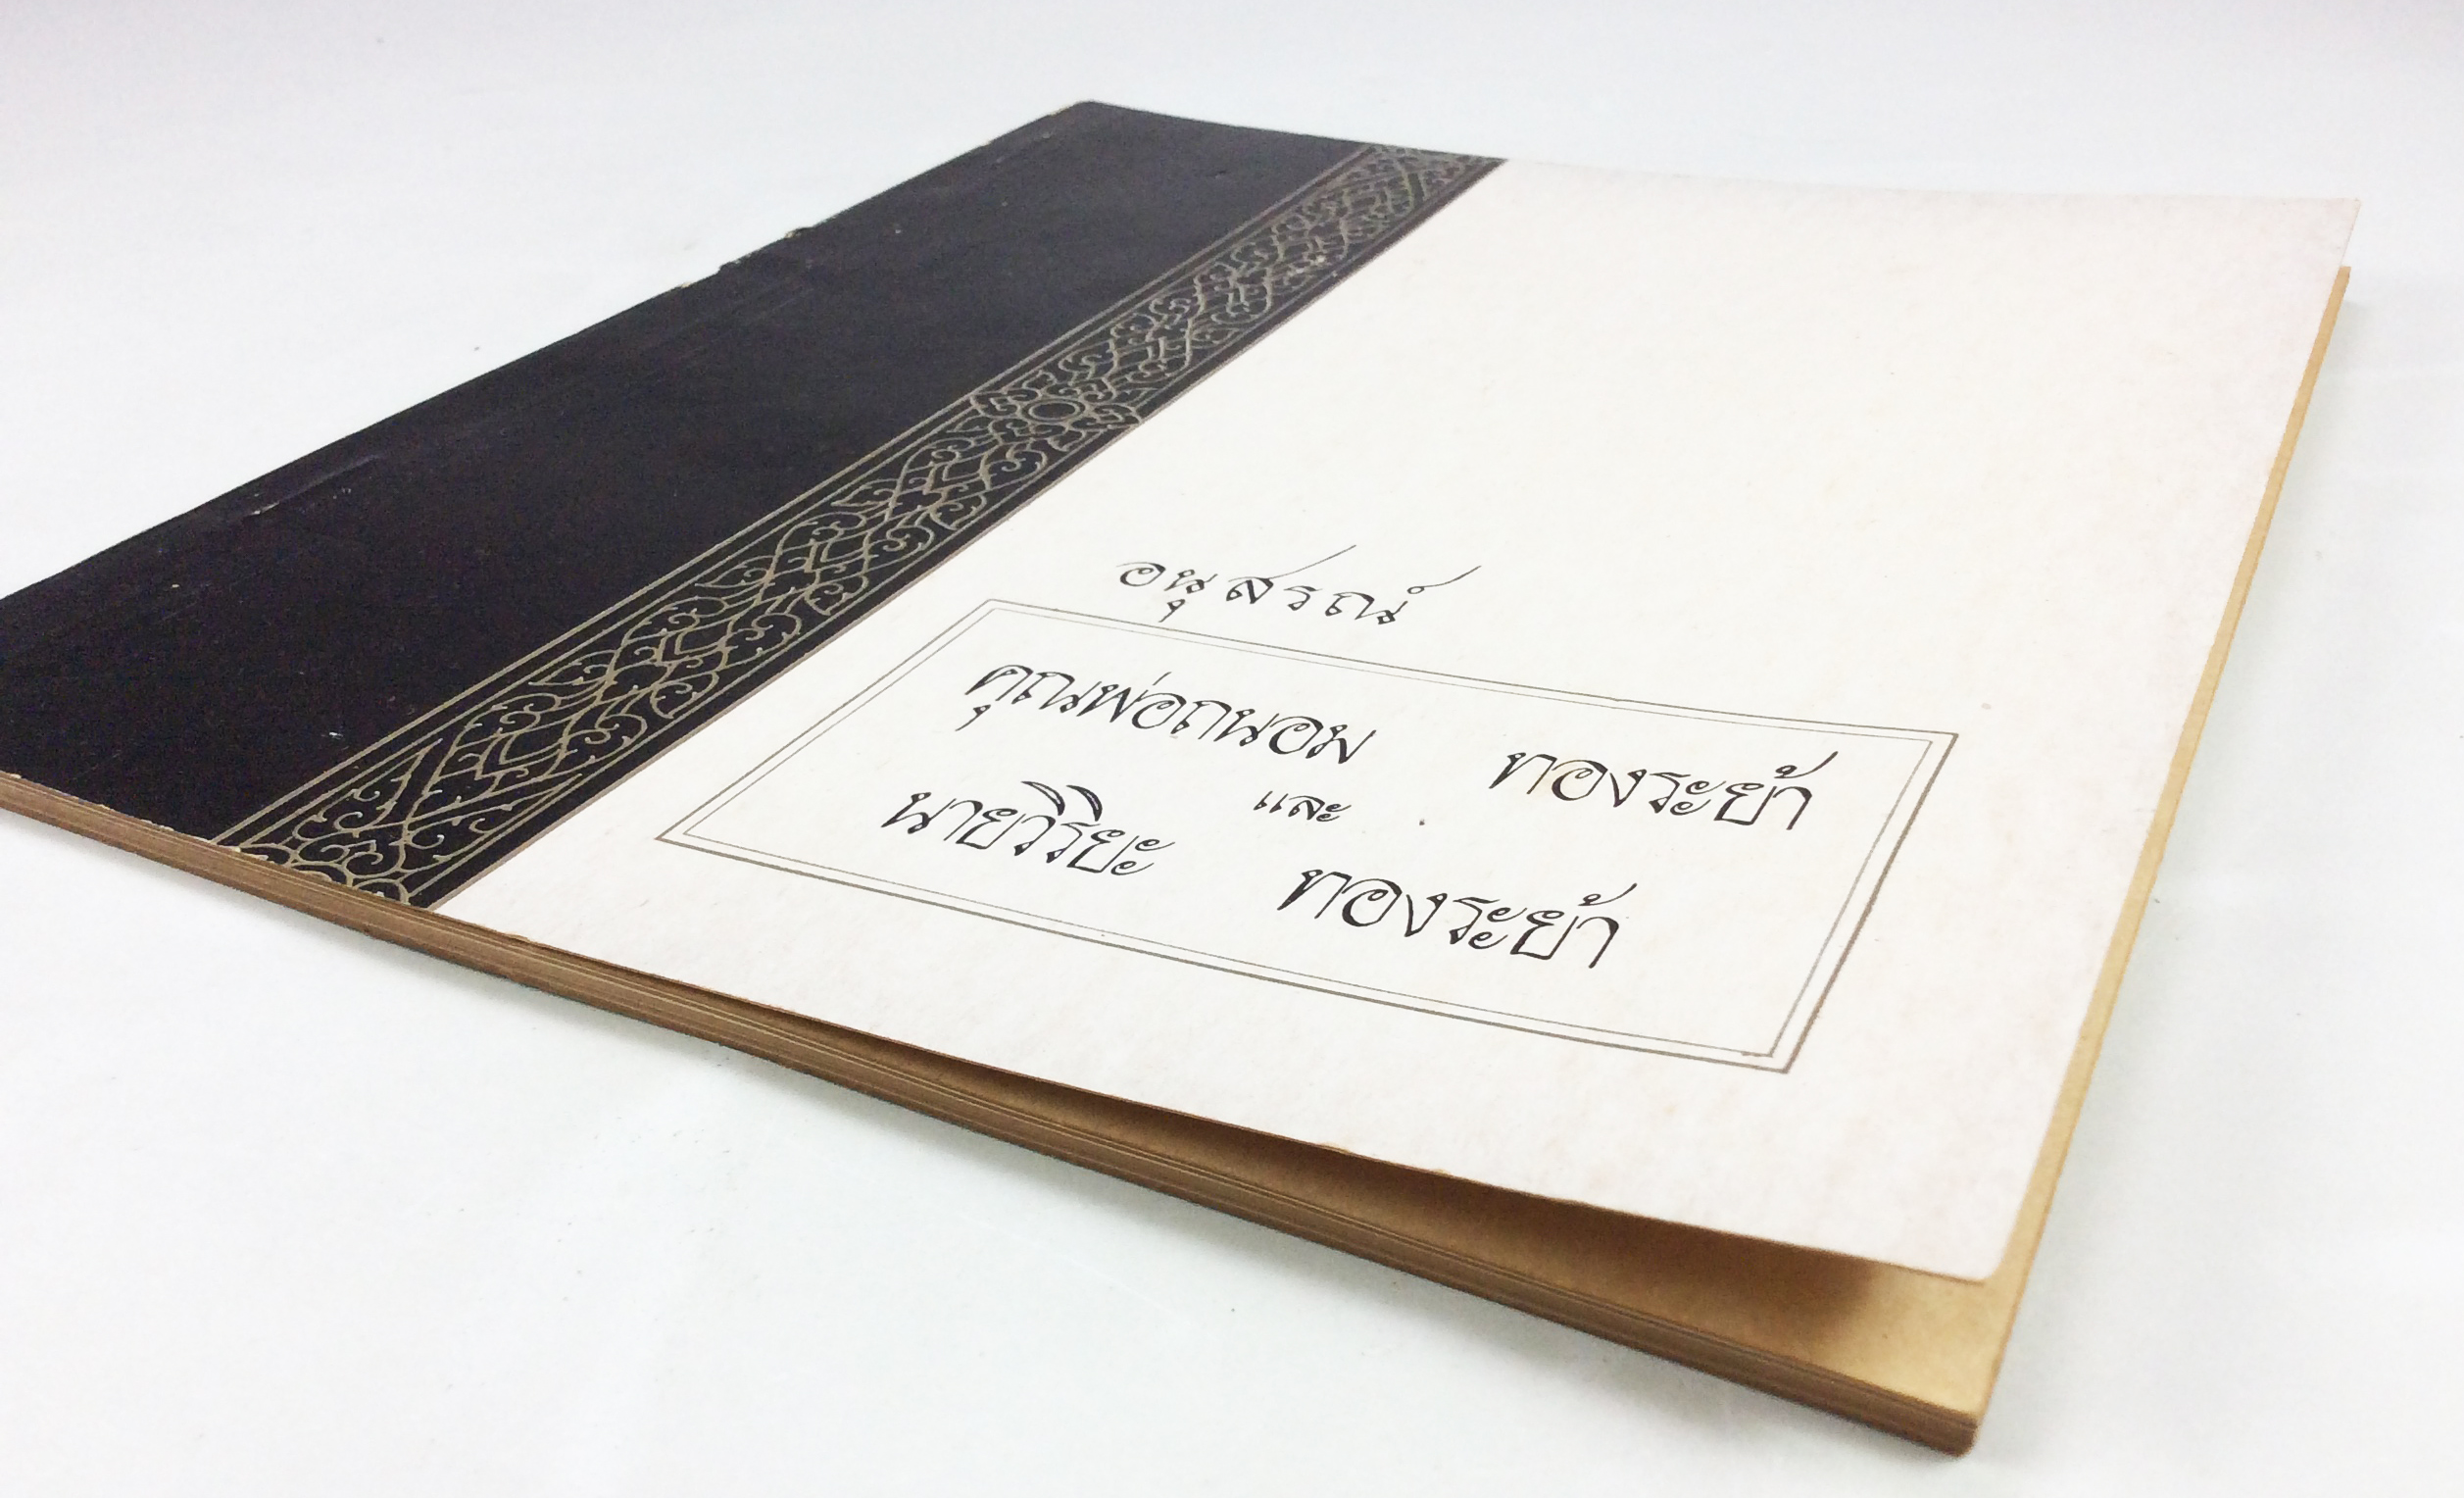 อนุสรณ์
คุณพ่อถนอม ทองระย้า
และ
นายวิริยะ ทองระย้า